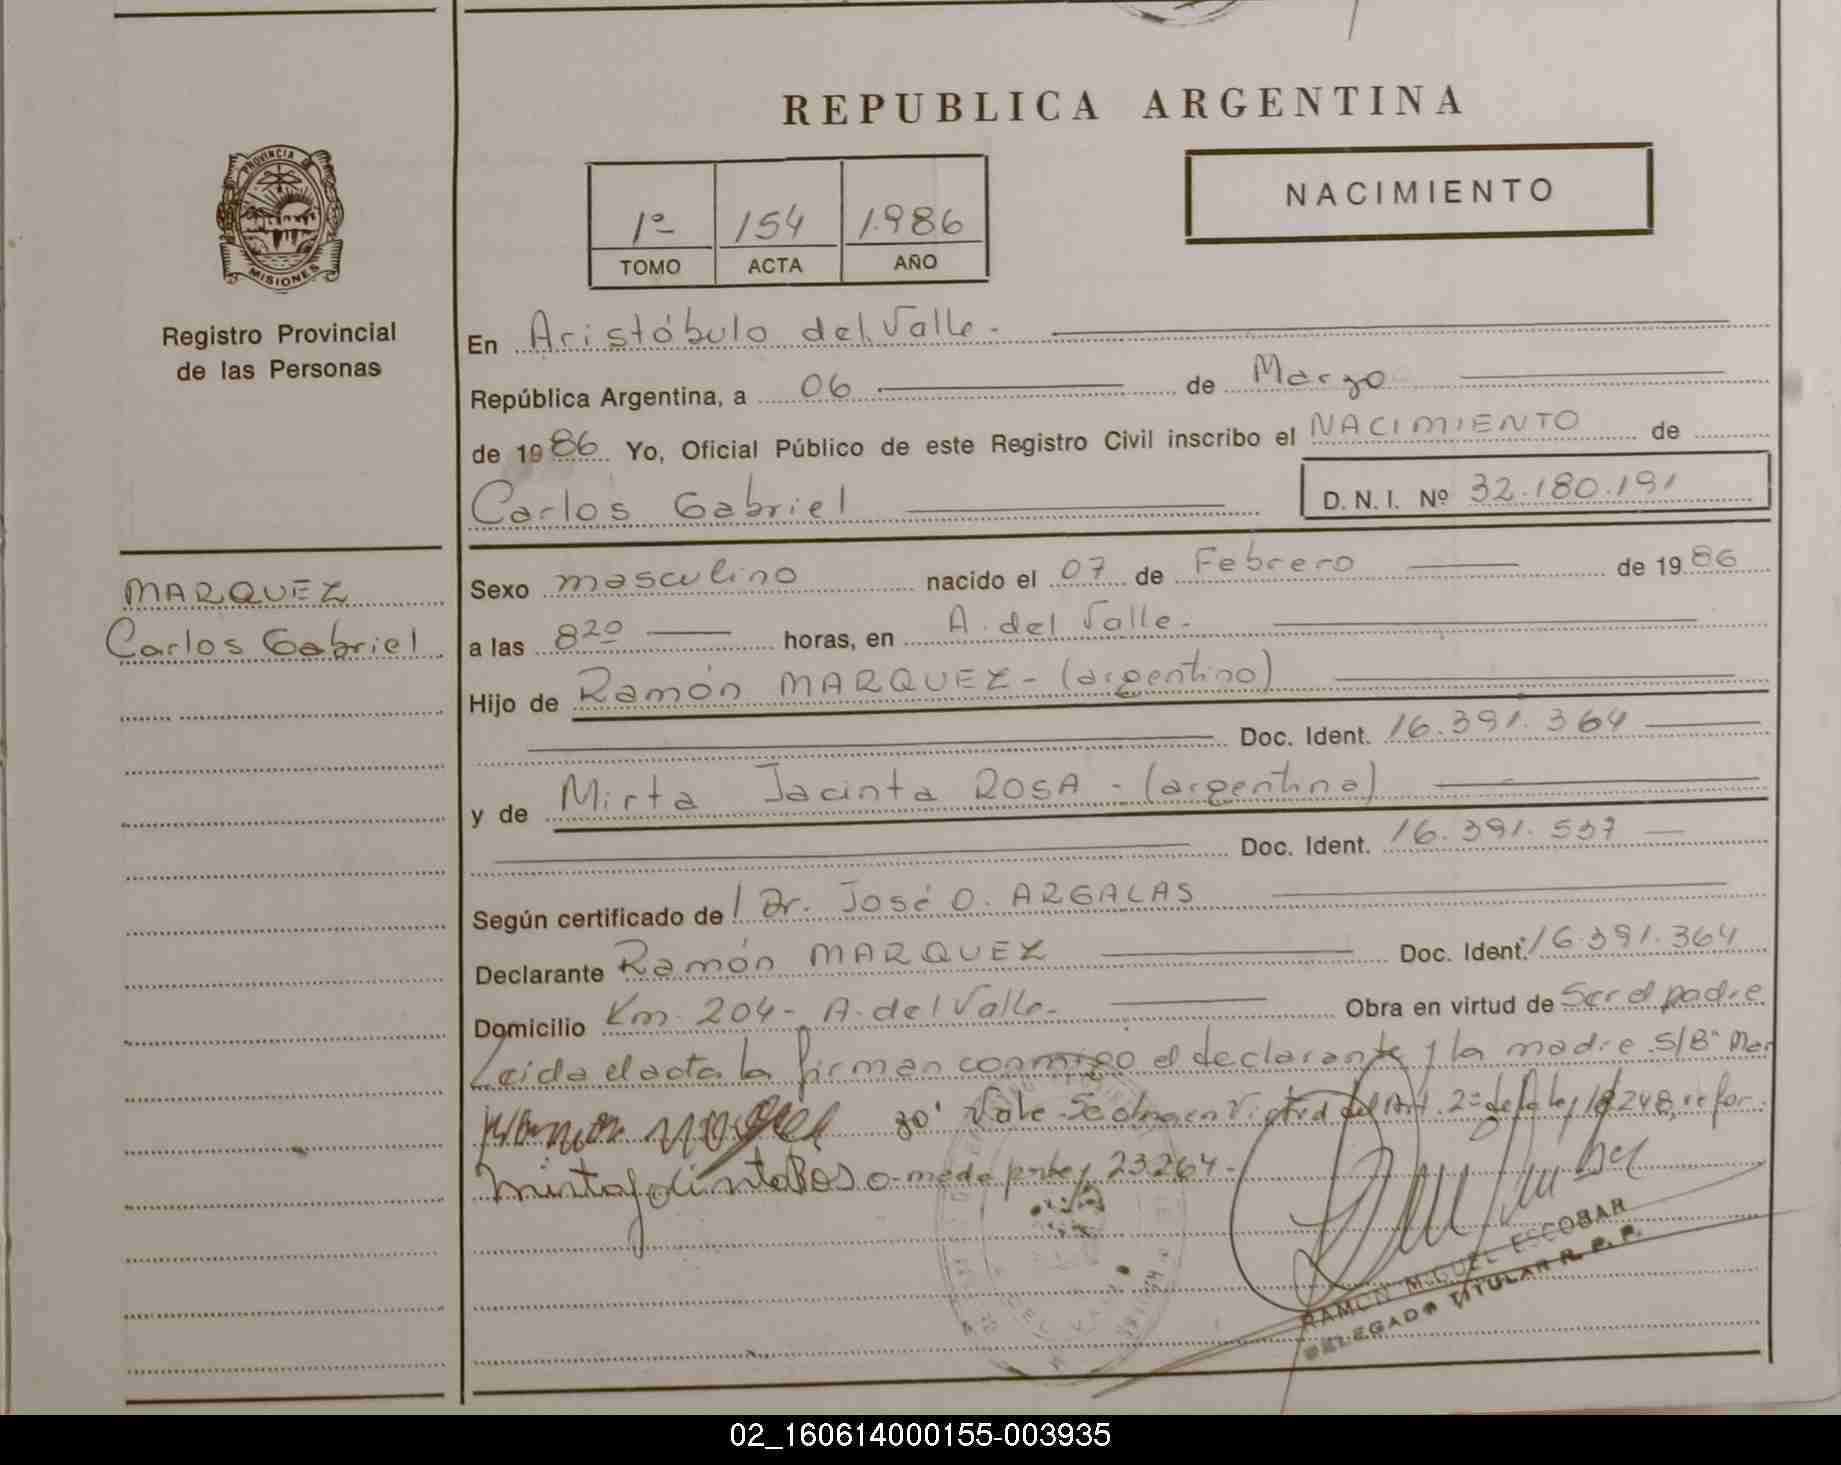 REPUBLICA ARGENTINA
PROVINCIA DE
MISIONES
Registro Provincial
de las Personas
NACIMIENTO
1º 154 1.986
TOMO ACTA AÑO
En Aristóbulo del Valle.-
República Argentina, a 06 de Marzo
de 1986 Yo, Oficial Público de este Registro Civil inscribo el NACIMIENTO de
Carlos Gabriel D.N.I. Nº 32.180.191
MARQUEZ
Carlos Gabriel
Sexo masculino nacido el 07 de Febrero de 1986
a las 8 20 horas, en A. del Valle.-
Hijo de Ramón MARQUEZ - (argentino)
Doc. Ident. 16.391.364
y de Mirta Jacinta ROSA - (argentina)
Doc. Ident. 16.391.537
Según certificado de Dr. José O. ARGALAS
Declarante Ramón MARQUEZ Doc. Ident. 16.391.364
Domicilio Km. 204 - A. del Valle.- Obra en virtud de Ser el padre
Leida el acta la firman conmigo el declarante y la madre. S/B
Vale. Se en Virtud del Art. 2º de la ley 18248, refor-
mada por ley 23264.-
RAMON MIGUEL ESCOBAR
DELEGADO TITULAR R. P. P.
02_160614000155-003935